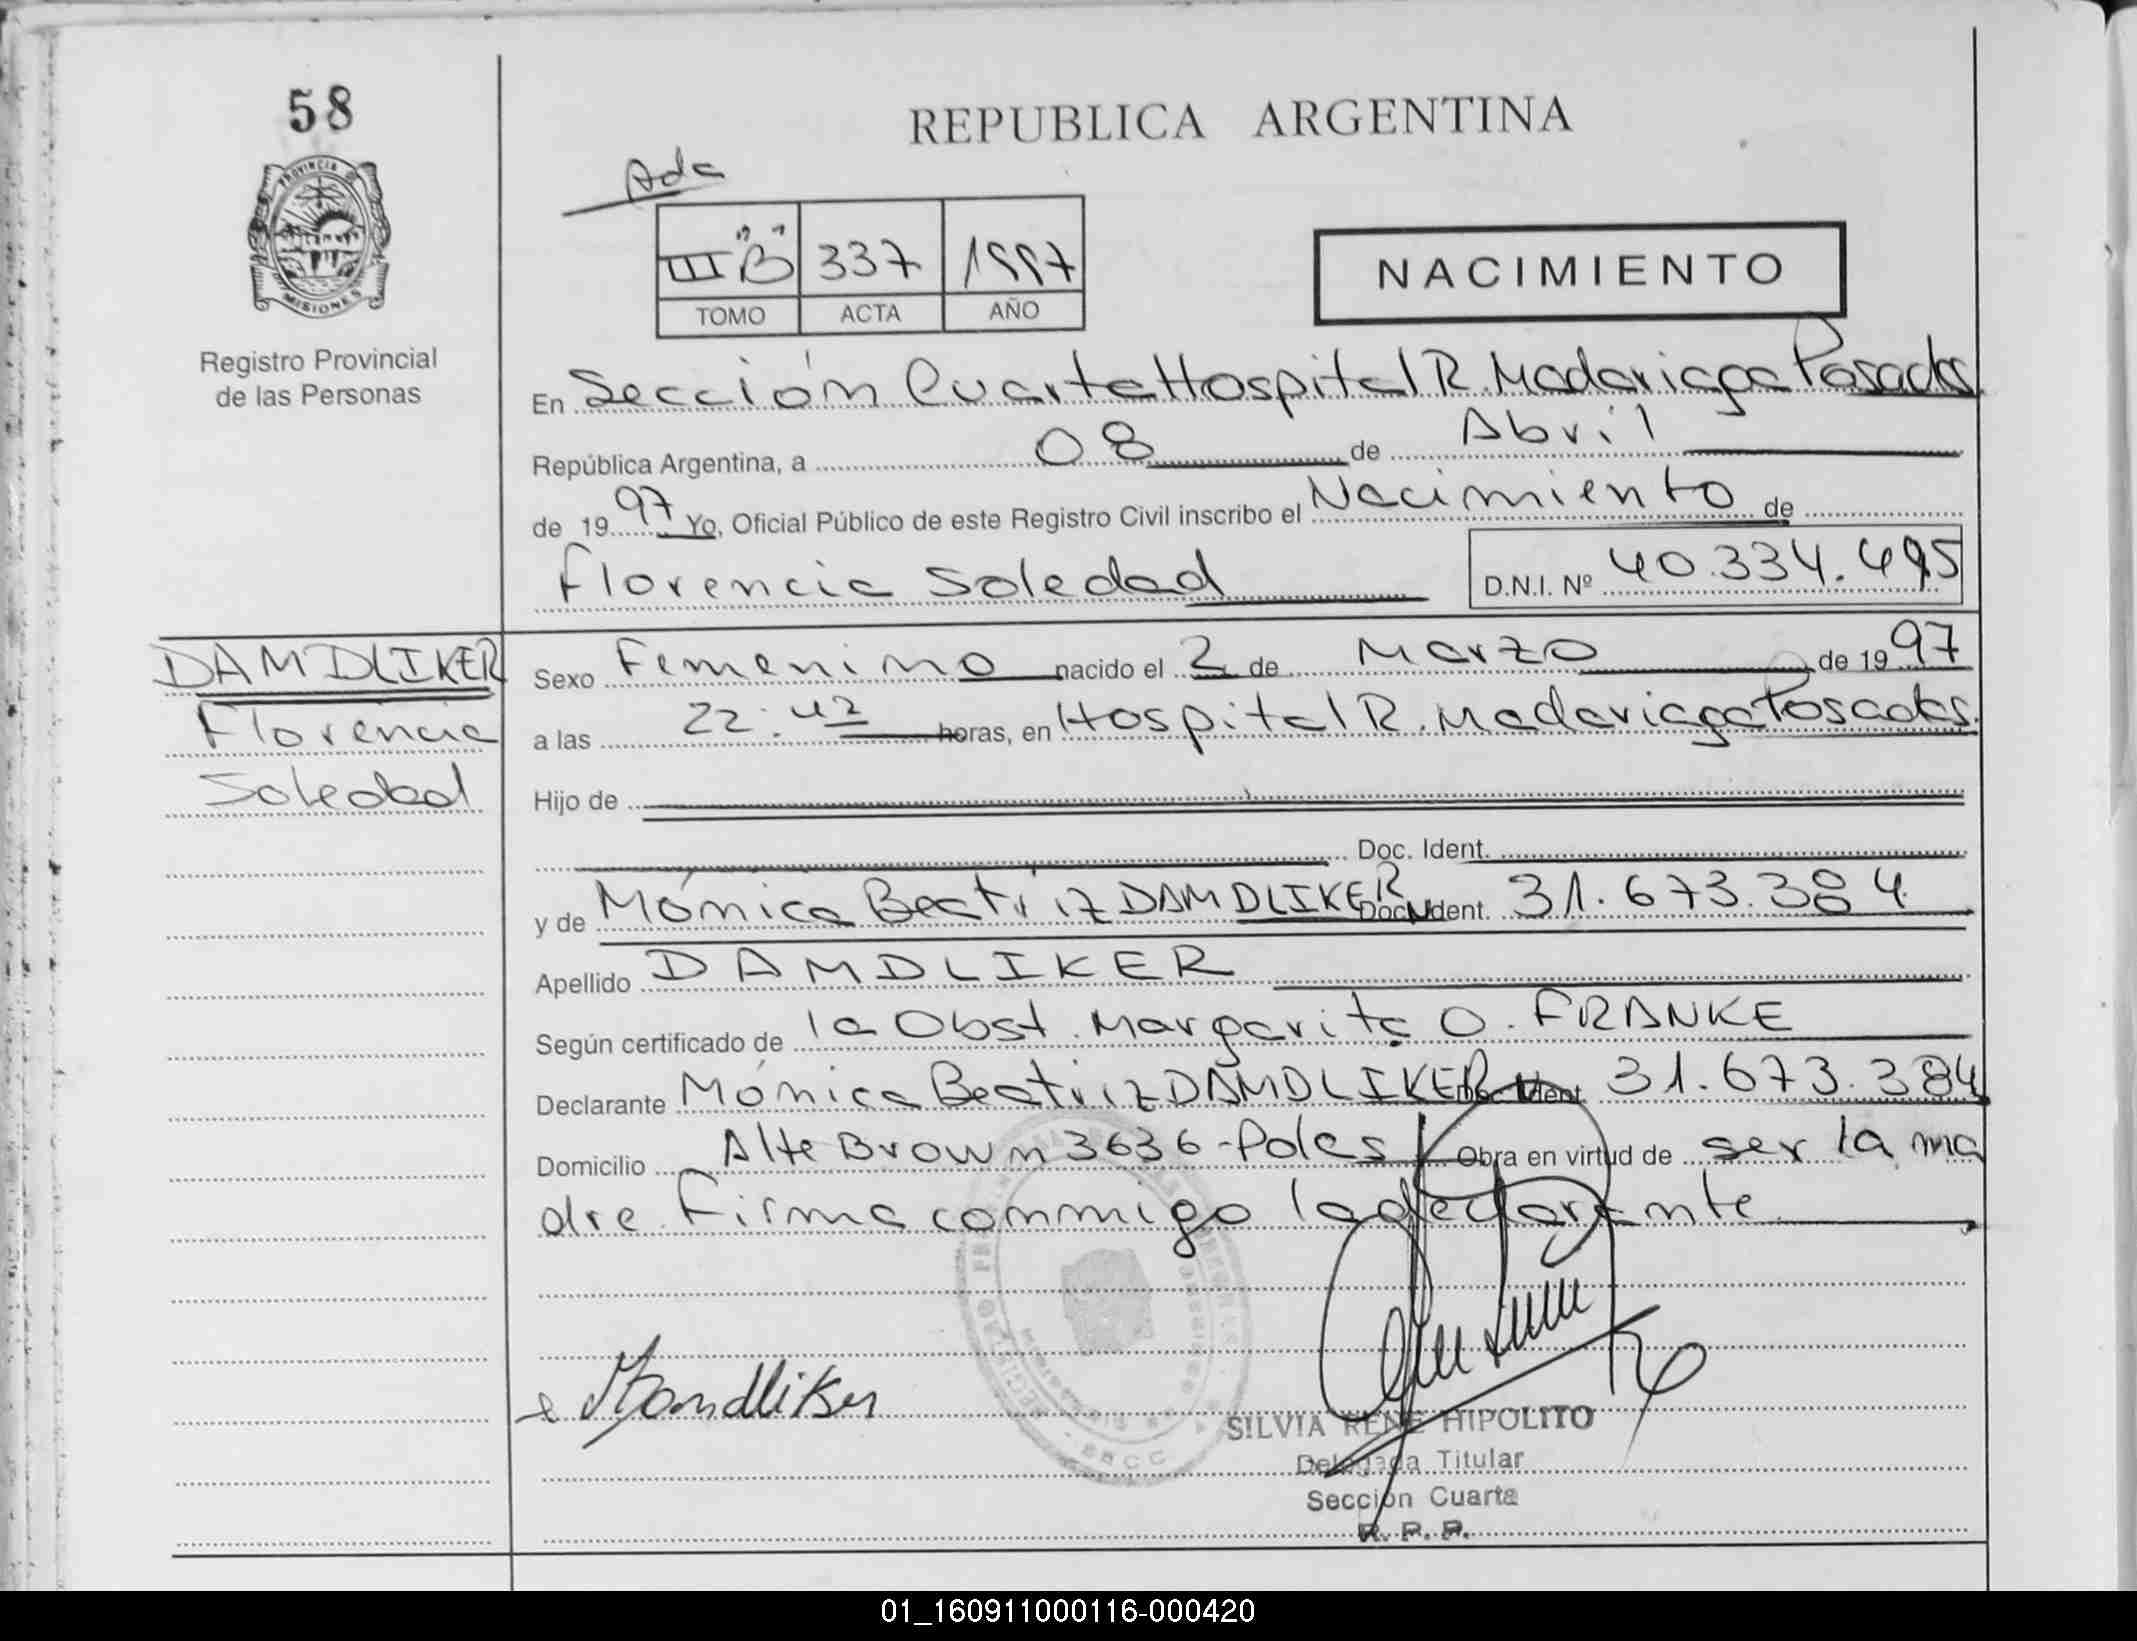 58
REPUBLICA ARGENTINA
PROVINCIA DE
MISIONES
Registro Provincial
de las Personas
III "B" 337 1997
TOMO ACTA AÑO
NACIMIENTO
En Sección Cuarta Hospital R. Madariaga Posadas
República Argentina, a 08 de Abril
de 1997 Yo, Oficial Público de este Registro Civil inscribo el Nacimiento de
Florencia Soledad D.N.I. Nº 40.334.495
DAMDLIKER
Florencia
Soledad
Sexo Femenino nacido el 2 de Marzo de 1997
a las 22:42 horas, en Hospital R. Madariaga Posadas.
Hijo de
Doc. Ident.
y de Mónica Beatriz DAMDLIKER Doc. Ident. 31.673.384
Apellido DAMDLIKER
Según certificado de la Obst. Margarita O. FRANKE
Declarante Mónica Beatriz DAMDLIKER Doc. Ident. 31.673.384
Domicilio Alte Brown 3636-Pdas Obra en virtud de ser la ma
dre. Firma conmigo la declarante
SILVIA RENE HIPOLITO
Delegada Titular
Sección Cuarta
R. P. P.
01_160911000116-000420